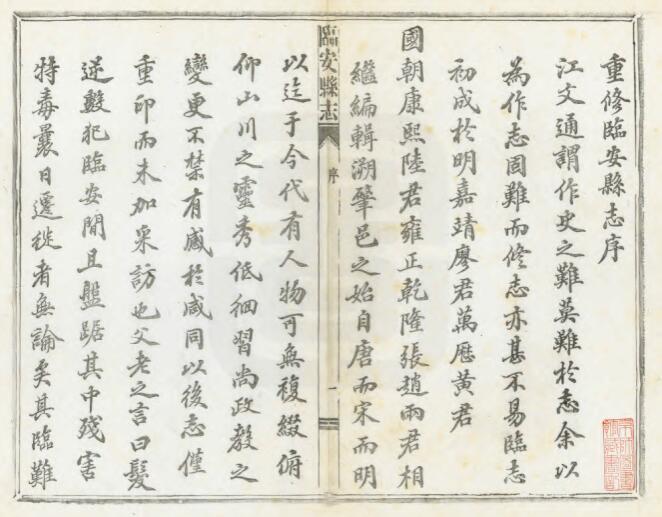 重修臨安縣志序
江文通謂作史之難莫難於志余以
為作志固難而修志亦甚不易臨志
初成於明嘉靖廖君萬歷黄君
國朝康熙陸君雍正乾隆張趙兩君相
繼編輯溯肇邑之始自唐而宋而明
臨安縣志
序
一
以迄于今代有人物可無複綴俯
仰山川之靈秀低徊習尚政教之
變更不禁有感於咸同以後志僅
重印而未加采訪也父老之言曰髮
逆數犯臨安間且盤踞其中殘害
特毒曩日遷徙者無論矣其臨難